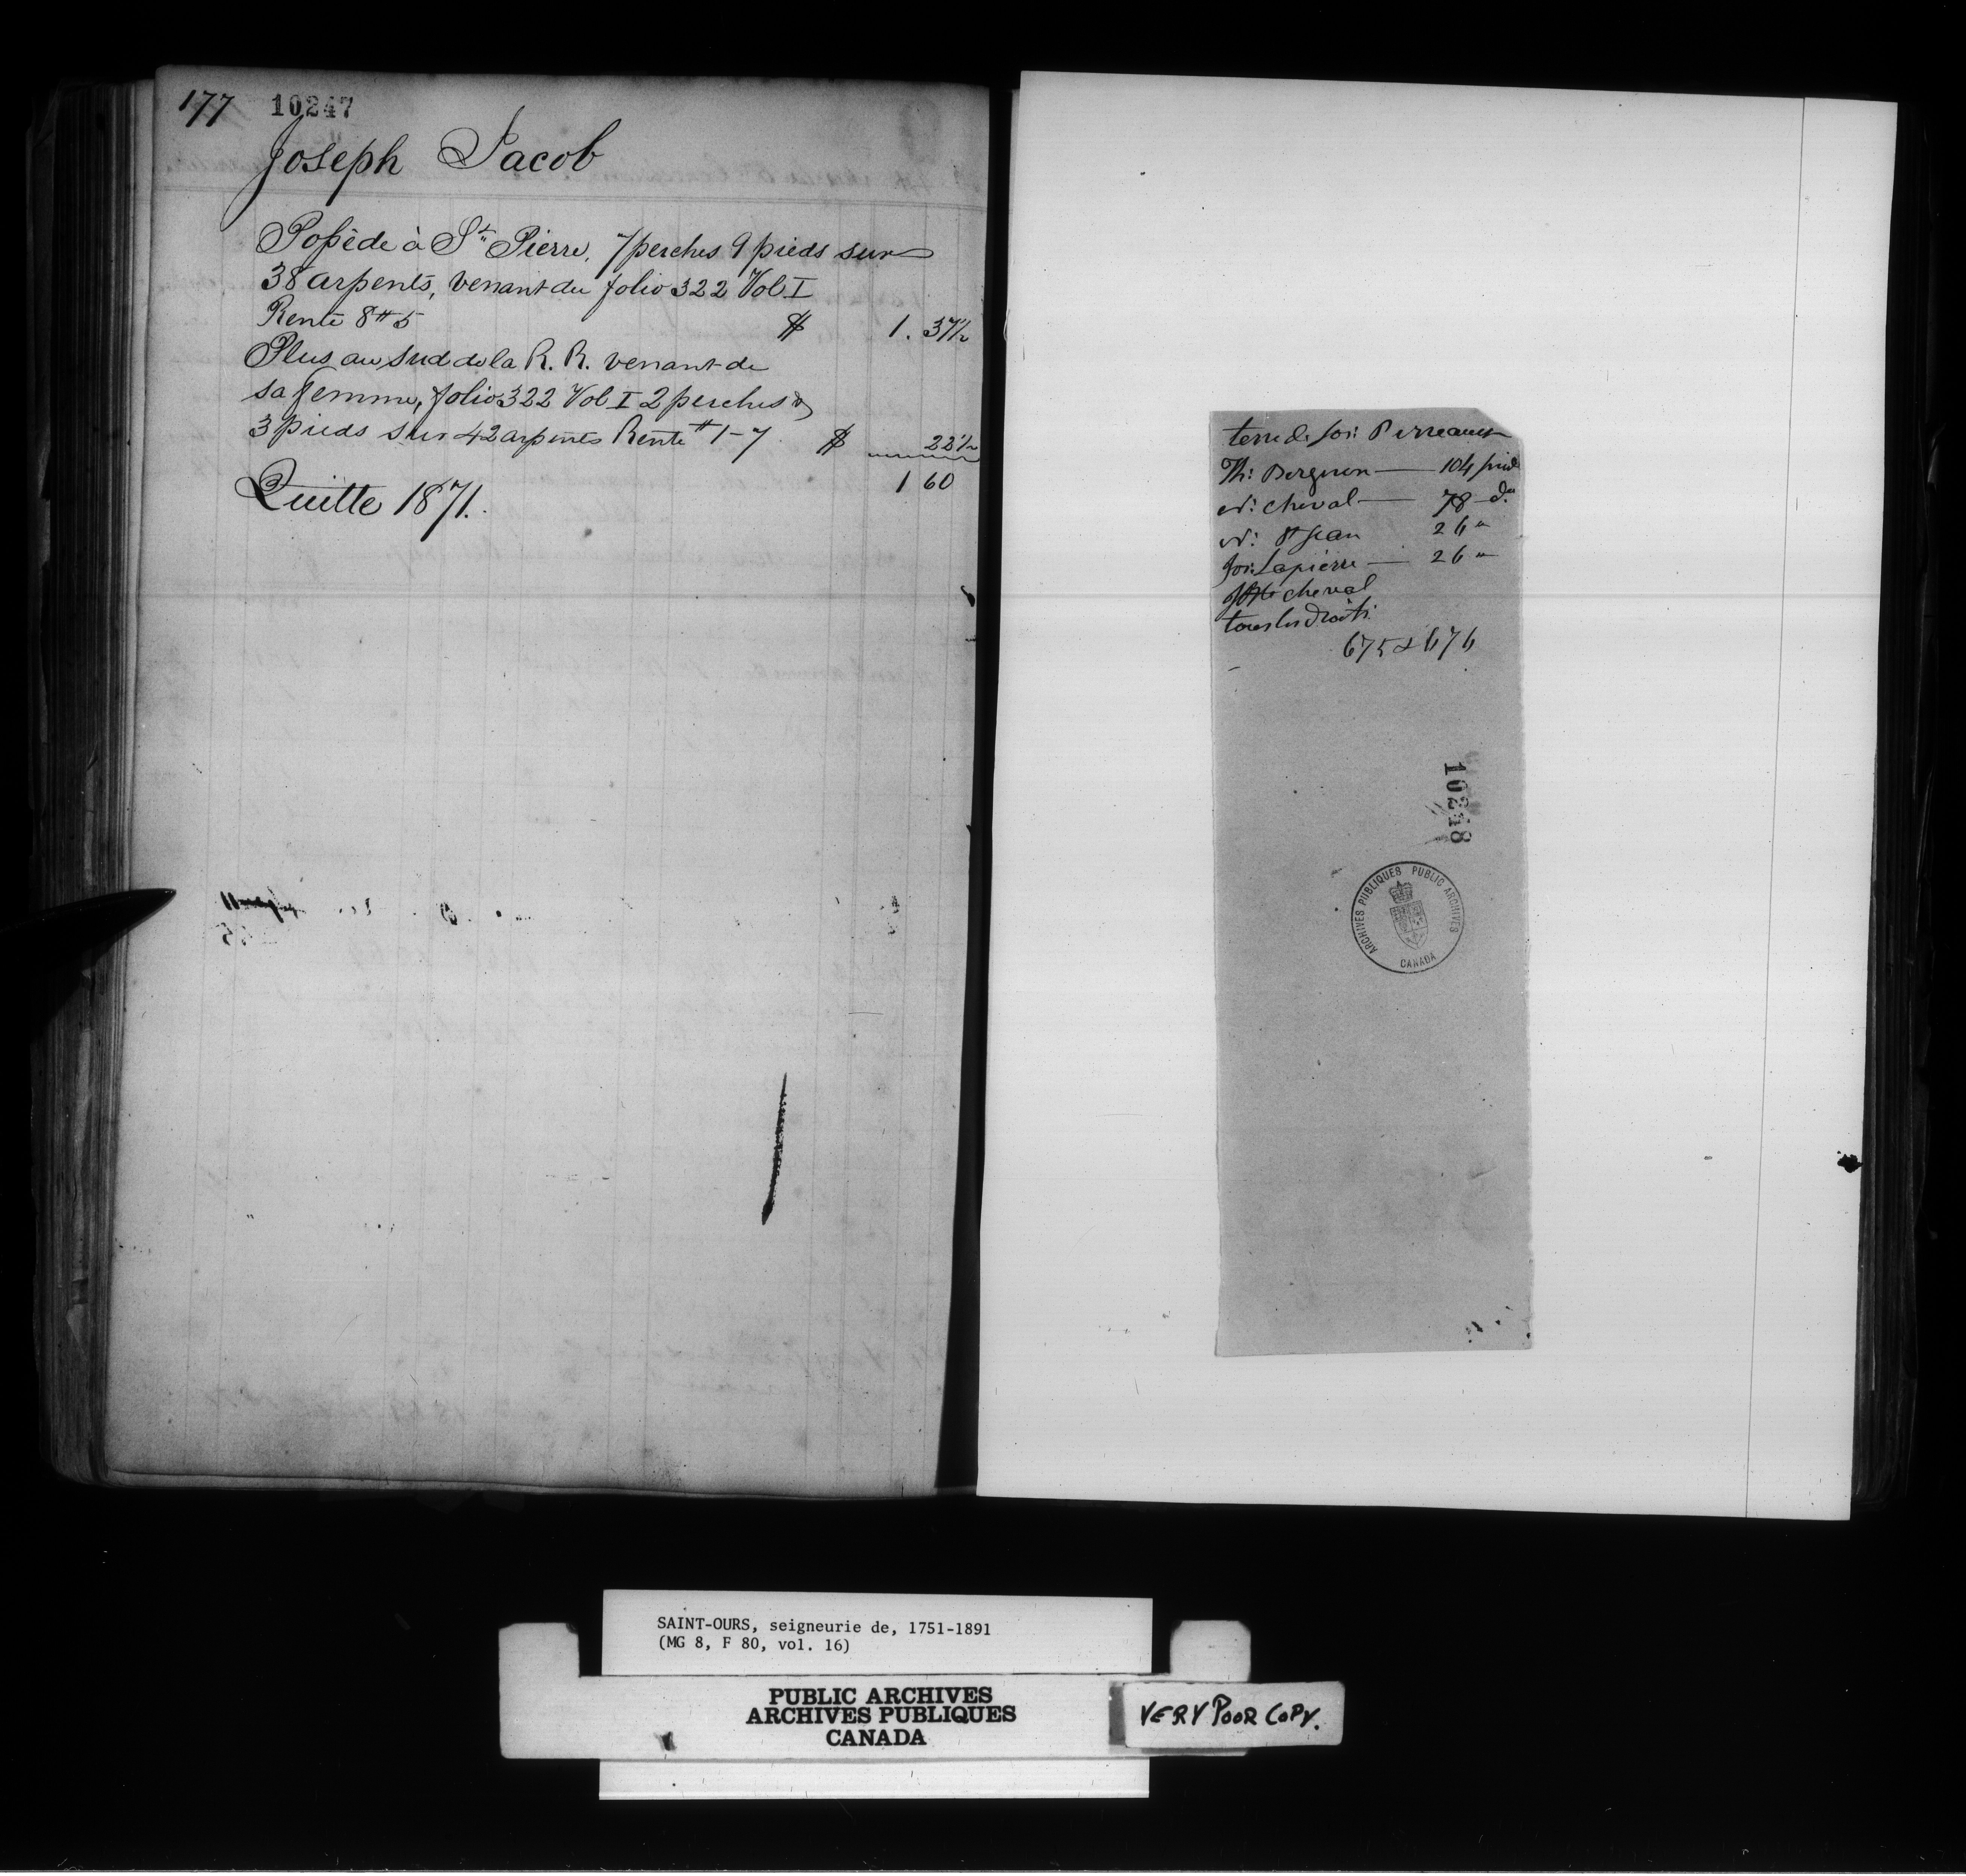 177 10247
Joseph Jacob
Possède à St. Pierre, 7 perches 9 pieds sur
38 arpents, venant du folio 322 Vol. I
Rente 8# 5 $ 1. 37½
Plus au sud de la R. R. venant de
sa femme, folio 322 Vol I 2 perches &
3 pieds sur 42 arpents Rente # 1-7 $ 22½
1 60
Quitte 1871.
terre de Jos: Perreault
Th: — 104 pieds
cheval — 78 do
St Jean 26 "
Jos: Lapierre — 26 "
cheval
tous les droits
675 & 676
10248
ARCHIVES PUBLIQUES PUBLIC ARCHIVES
CANADA
SAINT-OURS, seigneurie de, 1751-1891
(MG 8, F 80, vol. 16)
PUBLIC ARCHIVES
ARCHIVES PUBLIQUES
CANADA
VERY POOR COPY.